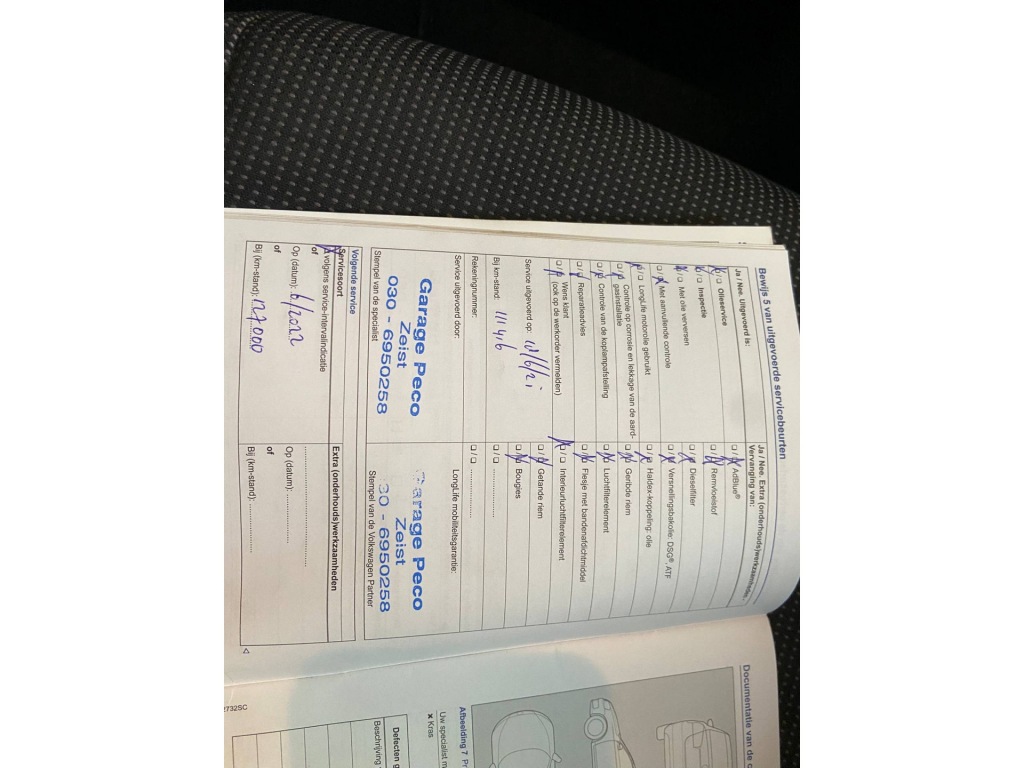 Bewijs 5 van uitgevoerde servicebeurten
Ja / Nee. Uitgevoerd is:
Olieservice
Inspectie
Met olie verversen
Met aanvullende controle
LongLife motorolie gebruikt
Controle op corrosie en lekkage van de aard-
gasinstallatie
Controle van de koplampafstelling
Reparatieadvies
Wens klant
(ook op de werkorder vermelden)
Service uitgevoerd op:
Bij km-stand: 111416
Rekeningnummer:
Service uitgevoerd door:
Garage Peco
Zeist
030 - 6950258
Stempel van de specialist
Ja / Nee. Extra (onderhouds)werkzaamheden
Vervanging van:
AdBlue®
Remvloeistof
Dieselfilter
Versnellingsbakolie: DSG®, ATF
Haldex-koppeling: olie
Geribde riem
Luchtfilterelement
Flesje met bandenafdichtmiddel
Interieurluchtfilterelement
Getande riem
Bougies
LongLife mobiliteitsgarantie:
Garage Peco
Zeist
030 - 6950258
Stempel van de Volkswagen Partner
Volgende service
Servicesoort
volgens service-intervalindicatie
of
Op (datum): 6/2022
of
Bij (km-stand): 127.000
Extra (onderhouds)werkzaamheden
Op (datum):
of
Bij (km-stand):
Documentatie van de c
Afbeelding 7 Pr
Uw specialist m
× Kras
Defecten g
Beschrijving
2732SC